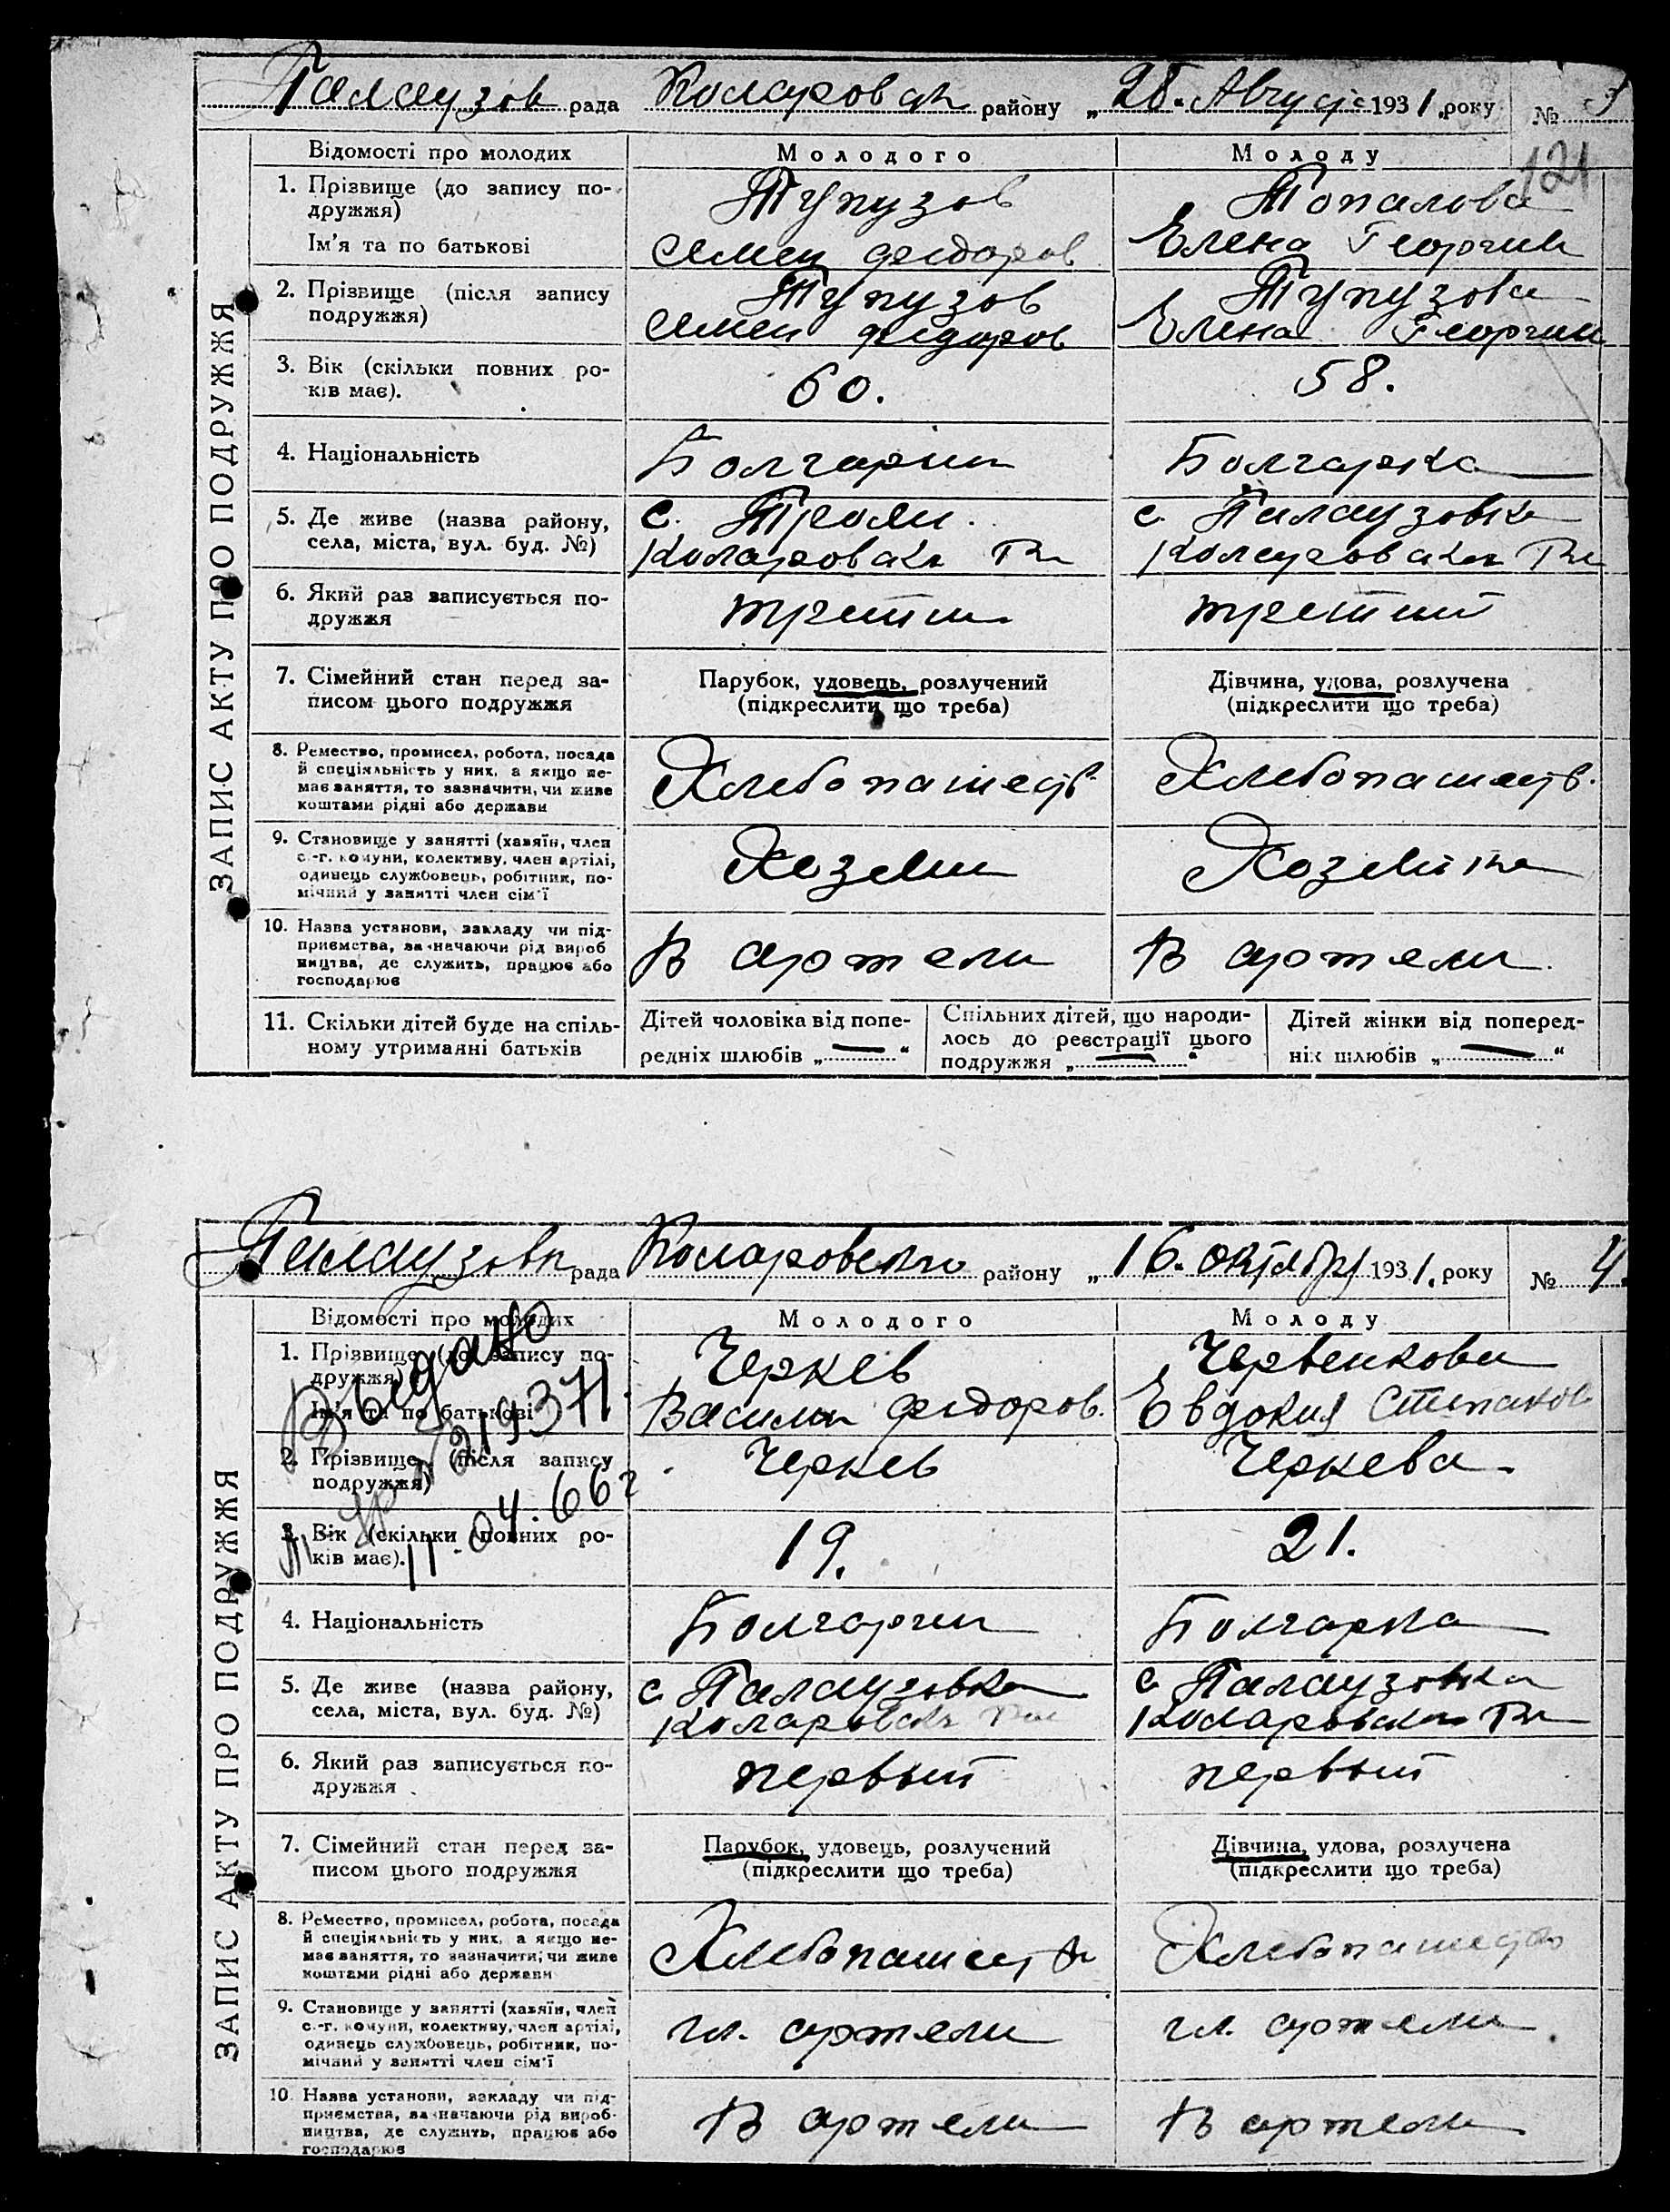 Палаузов рада Коларовск району „28. Август 1931. року № 3
121
ЗАПИС АКТУ ПРО ПОДРУЖЖЯ
Відомості про молодих Молодого Молоду
1. Прізвище (до запису по-
дружжя) Тупузов Топалова
Ім'я та по батькові Семен Федоров Елена Георгии
2. Прізвище (після запису Тупузов Тупузова
подружжя) Семен Федоров Елена Георгии
3. Вік (скільки повних ро-
ків має). 60. 58.
4. Національність Болгарин Болгарка
5. Де живе (назва району, с. Трояни. с. Палаузовка
села, міста, вул. буд. №) Коларовск Рн Коларовск Рн
6. Який раз записується по-
дружжя третий третий
7. Сімейний стан перед за- Парубок, удовець, розлучений Дівчина, удова, розлучена
писом цього подружжя (підкреслити що треба) (підкреслити що треба)
8. Ремество, промисел, робота, посада
й спеціяльність у них, а якщо не-
має заняття, то зазначити, чи живе Хлебопашеств Хлебопашеств.
коштами рідні або держави
9. Становище у занятті (хазяїн, член
с.-г. комуни, колективу, член артілі,
одинець службовець, робітник, по- Хозяин Хозяйка
мічний у занятті член сім'ї
10. Назва установи, закладу чи під-
приємства, зазначаючи рід вироб
ництва, де служить, працює або В артели В артели
господарює
11. Скільки дітей буде на спіль- Дітей чоловіка від попе- Спільних дітей, що народи- Дітей жінки від поперед-
ному утриманні батьків редніх шлюбів „—“ лось до реєстрації цього ніх шлюбів „—“
подружжя „—“
Палаузовк рада Коларовского району „16. октября 1931. року № 4.
ЗАПИС АКТУ ПРО ПОДРУЖЖЯ
Відомості про молодих Молодого Молоду
Выдано
219371.
11.04.66г
1. Прізвище (до запису по- Черкев Червенкова
дружжя)
Ім'я та по батькові Василий Федоров. Евдокия Степанов
2. Прізвище (після запису Черкев Черкева
подружжя)
3. Вік (скільки повних ро- 19. 21.
ків має).
4. Національність Болгарин Болгарка
5. Де живе (назва району, с Палаузовка с Палаузовка
села, міста, вул. буд. №) Коларовск Рн Коларовск Рн
6. Який раз записується по- первый первый
дружжя
7. Сімейний стан перед за- Парубок, удовець, розлучений Дівчина, удова, розлучена
писом цього подружжя (підкреслити що треба) (підкреслити що треба)
8. Ремество, промисел, робота, посада
й спеціяльність у них, а якщо не-
має заняття, то зазначити, чи живе Хлебопашеств Хлебопашество
коштами рідні або держави
9. Становище у занятті (хазяїн, член
с.-г. комуни, колективу, член артілі, чл. артели чл. артели
одинець службовець, робітник, по-
мічний у занятті член сім'ї
10. Назва установи, закладу чи під-
приємства, зазначаючи рід вироб-
ництва, де служить, працює або В артели В артели
господарює